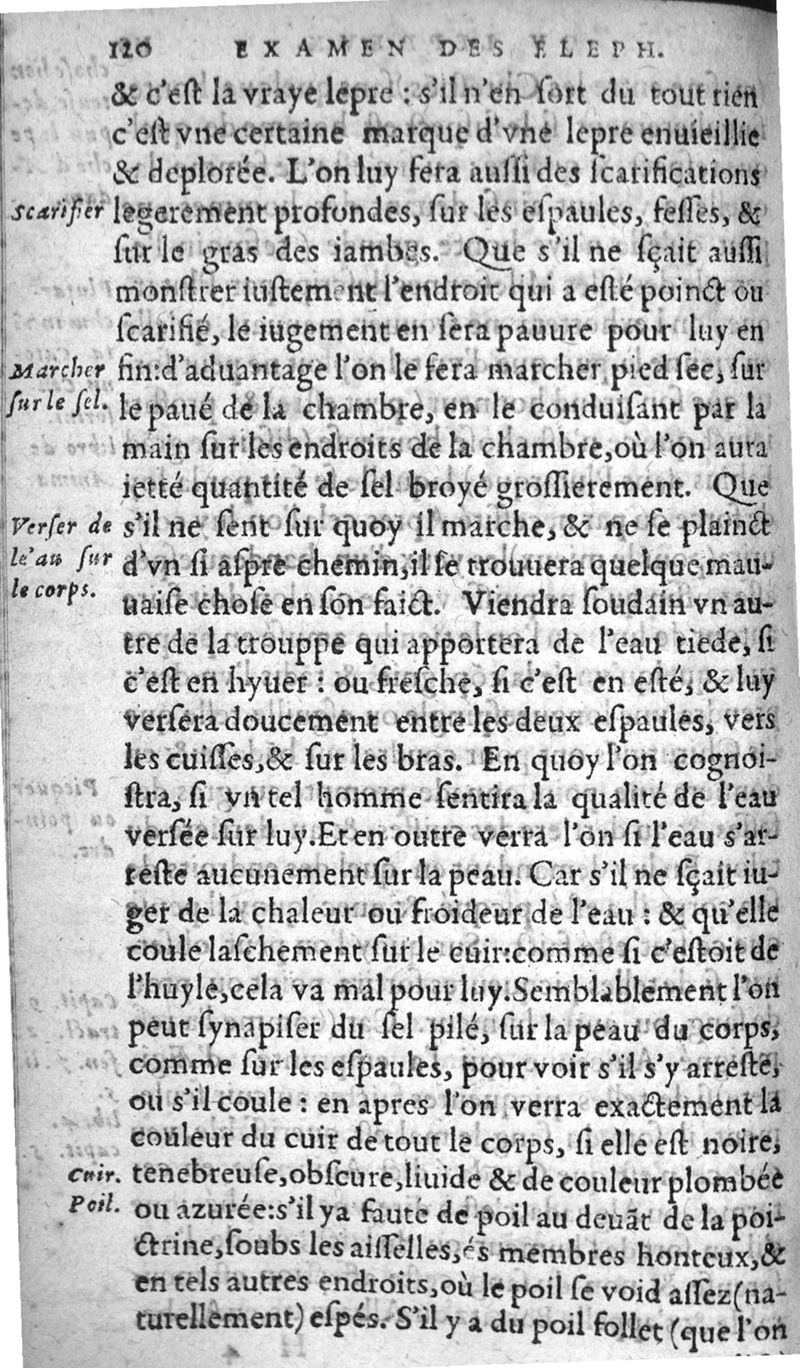 120 EXAMEN DES ELEPH.
& c'eſt la vraye lepre : s'il n'en ſort du tout rien
c'eſt vne certaine marque d'vne lepre enuieillie
& deplorée. L'on luy fera auſſi des ſcarifications
Scarifier
legerement profondes, ſur les eſpaules, feſſes, &
ſur le gras des iambes. Que s'il ne ſçait auſſi
monſtrer iuſtement l'endroit qui a eſté poinct ou
ſcarifié, le iugement en ſera pauure pour luy en
Marcher
fin:d'aduantage l'on le fera marcher pied ſec, ſur
ſur le ſel.
le paué de la chambre, en le conduiſant par la
main ſur les endroits de la chambre,où l'on aura
ietté quantité de ſel broyé groſſierement. Que
Verſer de
s'il ne ſent ſur quoy il marche, & ne ſe plainct
le'au ſur
d'vn ſi aſpre chemin,il ſe trouuera quelque mau-
le corps.
uaiſe choſe en ſon faict. Viendra ſoudain vn au-
tre de la trouppe qui apportera de l'eau tiede, ſi
c'eſt en hyuer : ou freſche, ſi c'eſt en eſté, & luy
verſera doucement entre les deux eſpaules, vers
les cuiſſes,& ſur les bras. En quoy l'on cognoi-
ſtra, ſi vn tel homme ſentira la qualité de l'eau
verſée ſur luy.Et en outre verra l'on ſi l'eau s'ar-
reſte aucunement ſur la peau. Car s'il ne ſçait iu-
ger de la chaleur ou froideur de l'eau : & qu'elle
coule laſchement ſur le cuir:comme ſi c'eſtoit de
l'huyle,cela va mal pour luy.Semblablement l'on
peut ſynapiſer du ſel pilé, ſur la peau du corps,
comme ſur les eſpaules, pour voir s'il s'y arreſte,
ou s'il coule : en apres l'on verra exactement la
couleur du cuir de tout le corps, ſi elle eſt noire,
Cuir.
tenebreuſe,obſcure,liuide & de couleur plombée
Poil.
ou azurée:s'il ya faute de poil au deuãt de la poi-
ctrine,ſoubs les aiſſelles,és membres honteux,&
en tels autres endroits,où le poil ſe void aſſez(na-
turellement) eſpés. S'il y a du poil follet (que l'on